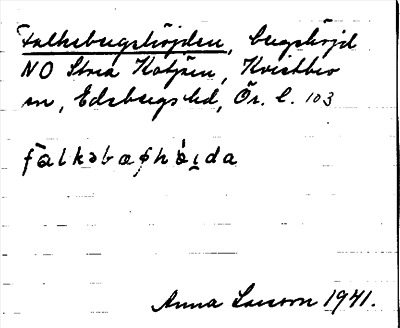 Falkebergshöjden, bergshöjd
NO Stora Kotjärn, Kvistbro
sn, Edsbergs hd, Ör. l. 103
fàlkəbæꞧhǻi̯da
Anna Larsson 1941.